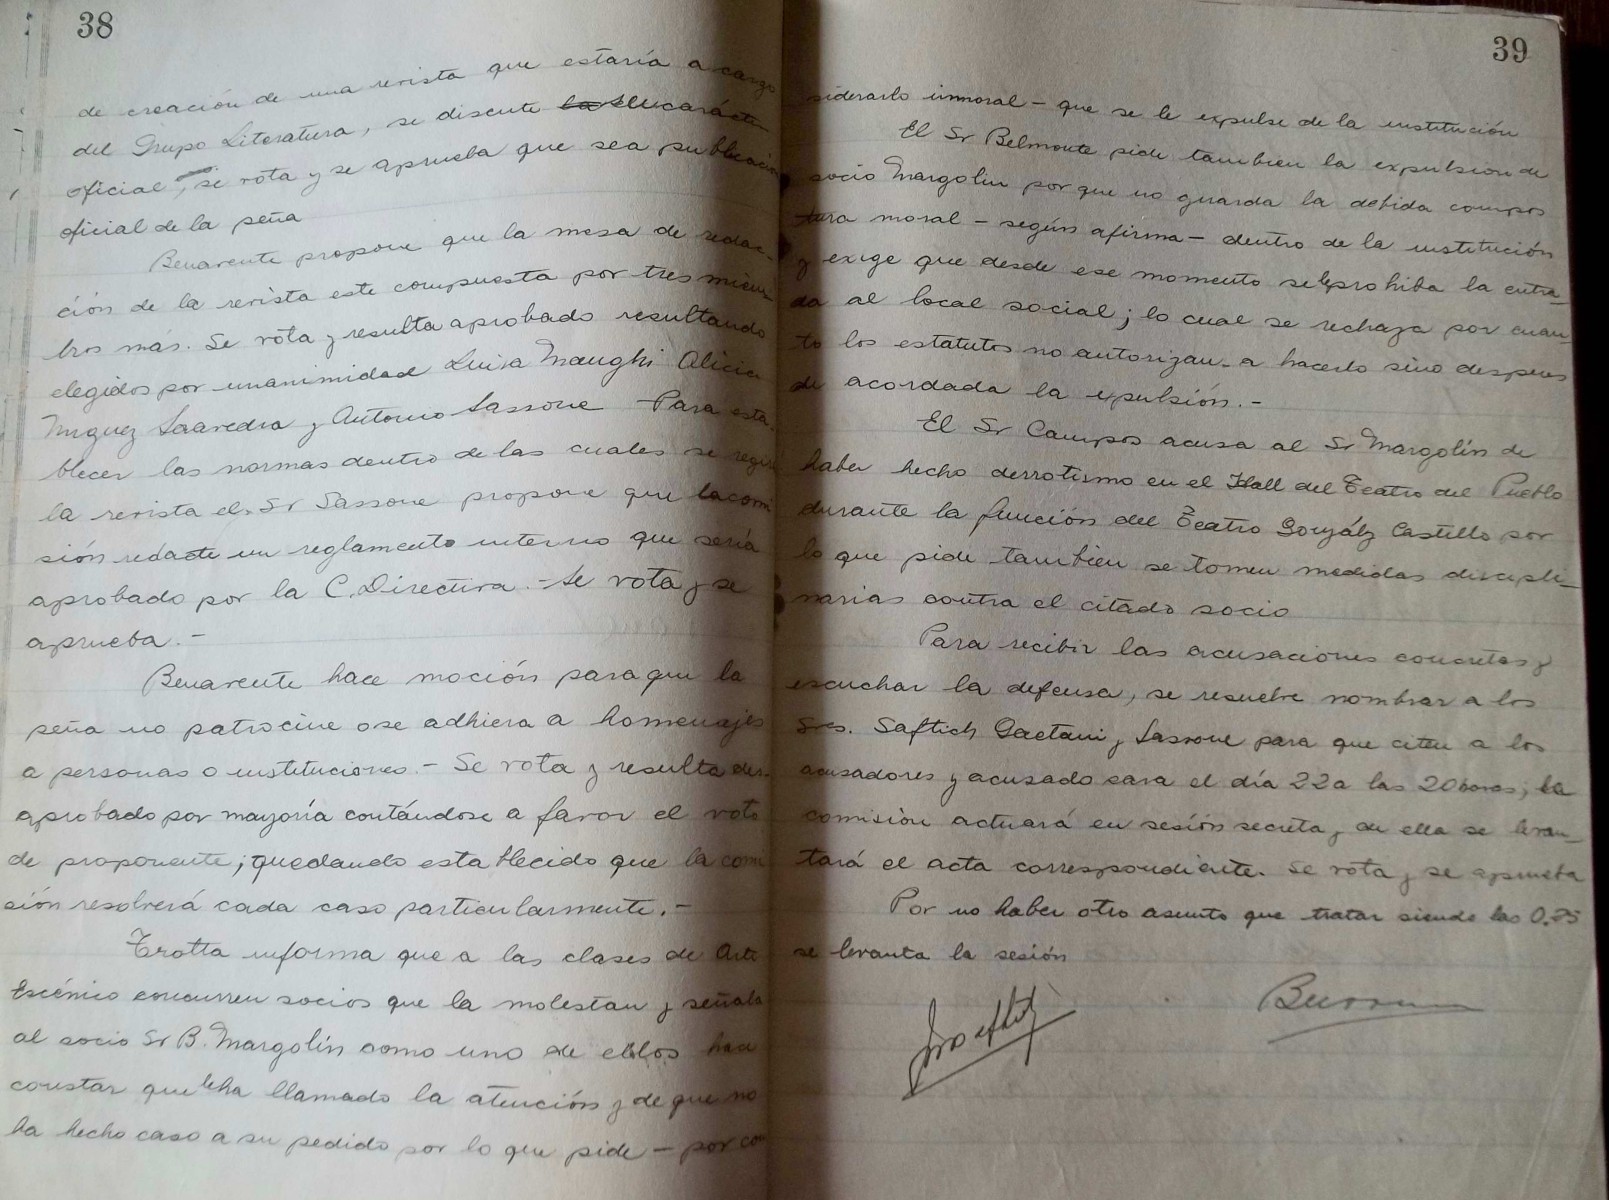 38
de creación de una revista que estaría a cargo
del Grupo Literatura, se discute la el carácter
oficial, se vota y se aprueba que sea publicación
oficial de la peña
Benavente propone que la mesa de redac-
ción de la revista este compuesta por tres miem-
bros más. Se vota y resulta aprobado resultando
elegidos por unanimidad Luisa Manghi Alicia
Miguez Saavedra y Antonio Sassone - Para esta-
blecer las normas dentro de las cuales se regirá
la revista el Sr Sassone propone que la comi
sión redacte un reglamento interno que sería
aprobado por la C. Directiva. - Se vota y se
aprueba. -
Benavente hace moción para que la
peña no patrocine o se adhiera a homenajes
a personas o instituciones. - Se vota y resulta des-
aprobado por mayoría contándose a favor el voto
de proponente; quedando establecido que la comi
sión resolverá cada caso particularmente. -
Trotta informa que a las clases de Arte
Escénico concurren socios que la molestan y señala
al socio Sr B. Margolín como uno de ellos hace
constar que le ha llamado la atención y de que no
ha hecho caso a su pedido por lo que pide - por con
39
siderarlo inmoral - que se le expulse de la institución
El Sr Belmonte pide tambien la expulsion de
socio Margolin por que no guarda la debida compos
tura moral - según afirma - dentro de la institución
y exige que desde ese momento se le prohiba la entra-
da al local social; lo cual se rechaza por cuan-
to los estatutos no autorizan a hacerlo sino despues
de acordada la expulsión. -
El Sr Campos acusa al Sr Margolín de
haber hecho derrotismo en el Hall del Teatro del Pueblo
durante la función del Teatro González Castillo por
lo que pide tambien se tomen medidas discipli-
narias contra el citado socio
Para recibir las acusaciones concretas y
escuchar la defensa, se resuelve nombrar a los
Sres. Saftich Gaetani y Sassone para que citen a los
acusadores y acusado para el día 22 a las 20 horas; la
comisión actuará en sesión secreta y de ella se levan-
tará el acta correspondiente. Se vota y se aprueba
Por no haber otro asunto que tratar siendo las 0.25
se levanta la sesión